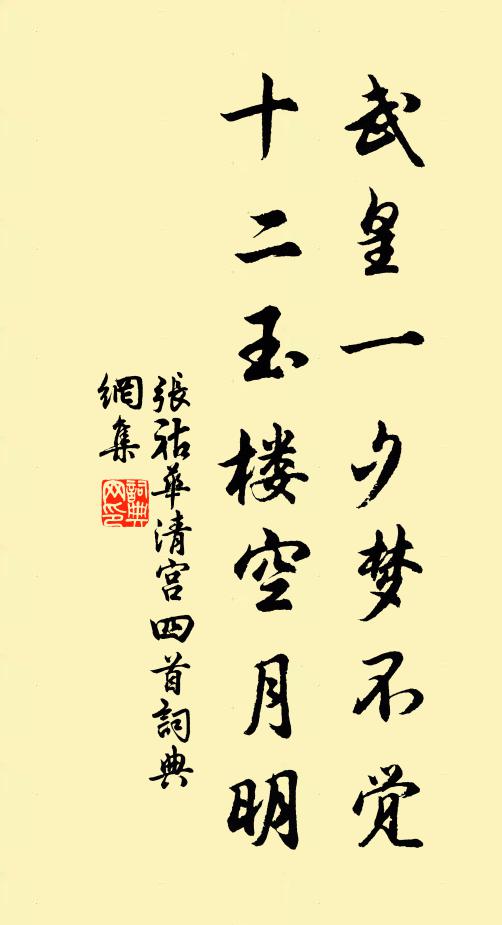 武皇一夕梦不觉
十二玉楼空月明
張祜華清宫四首詞典
網集
詞典网印